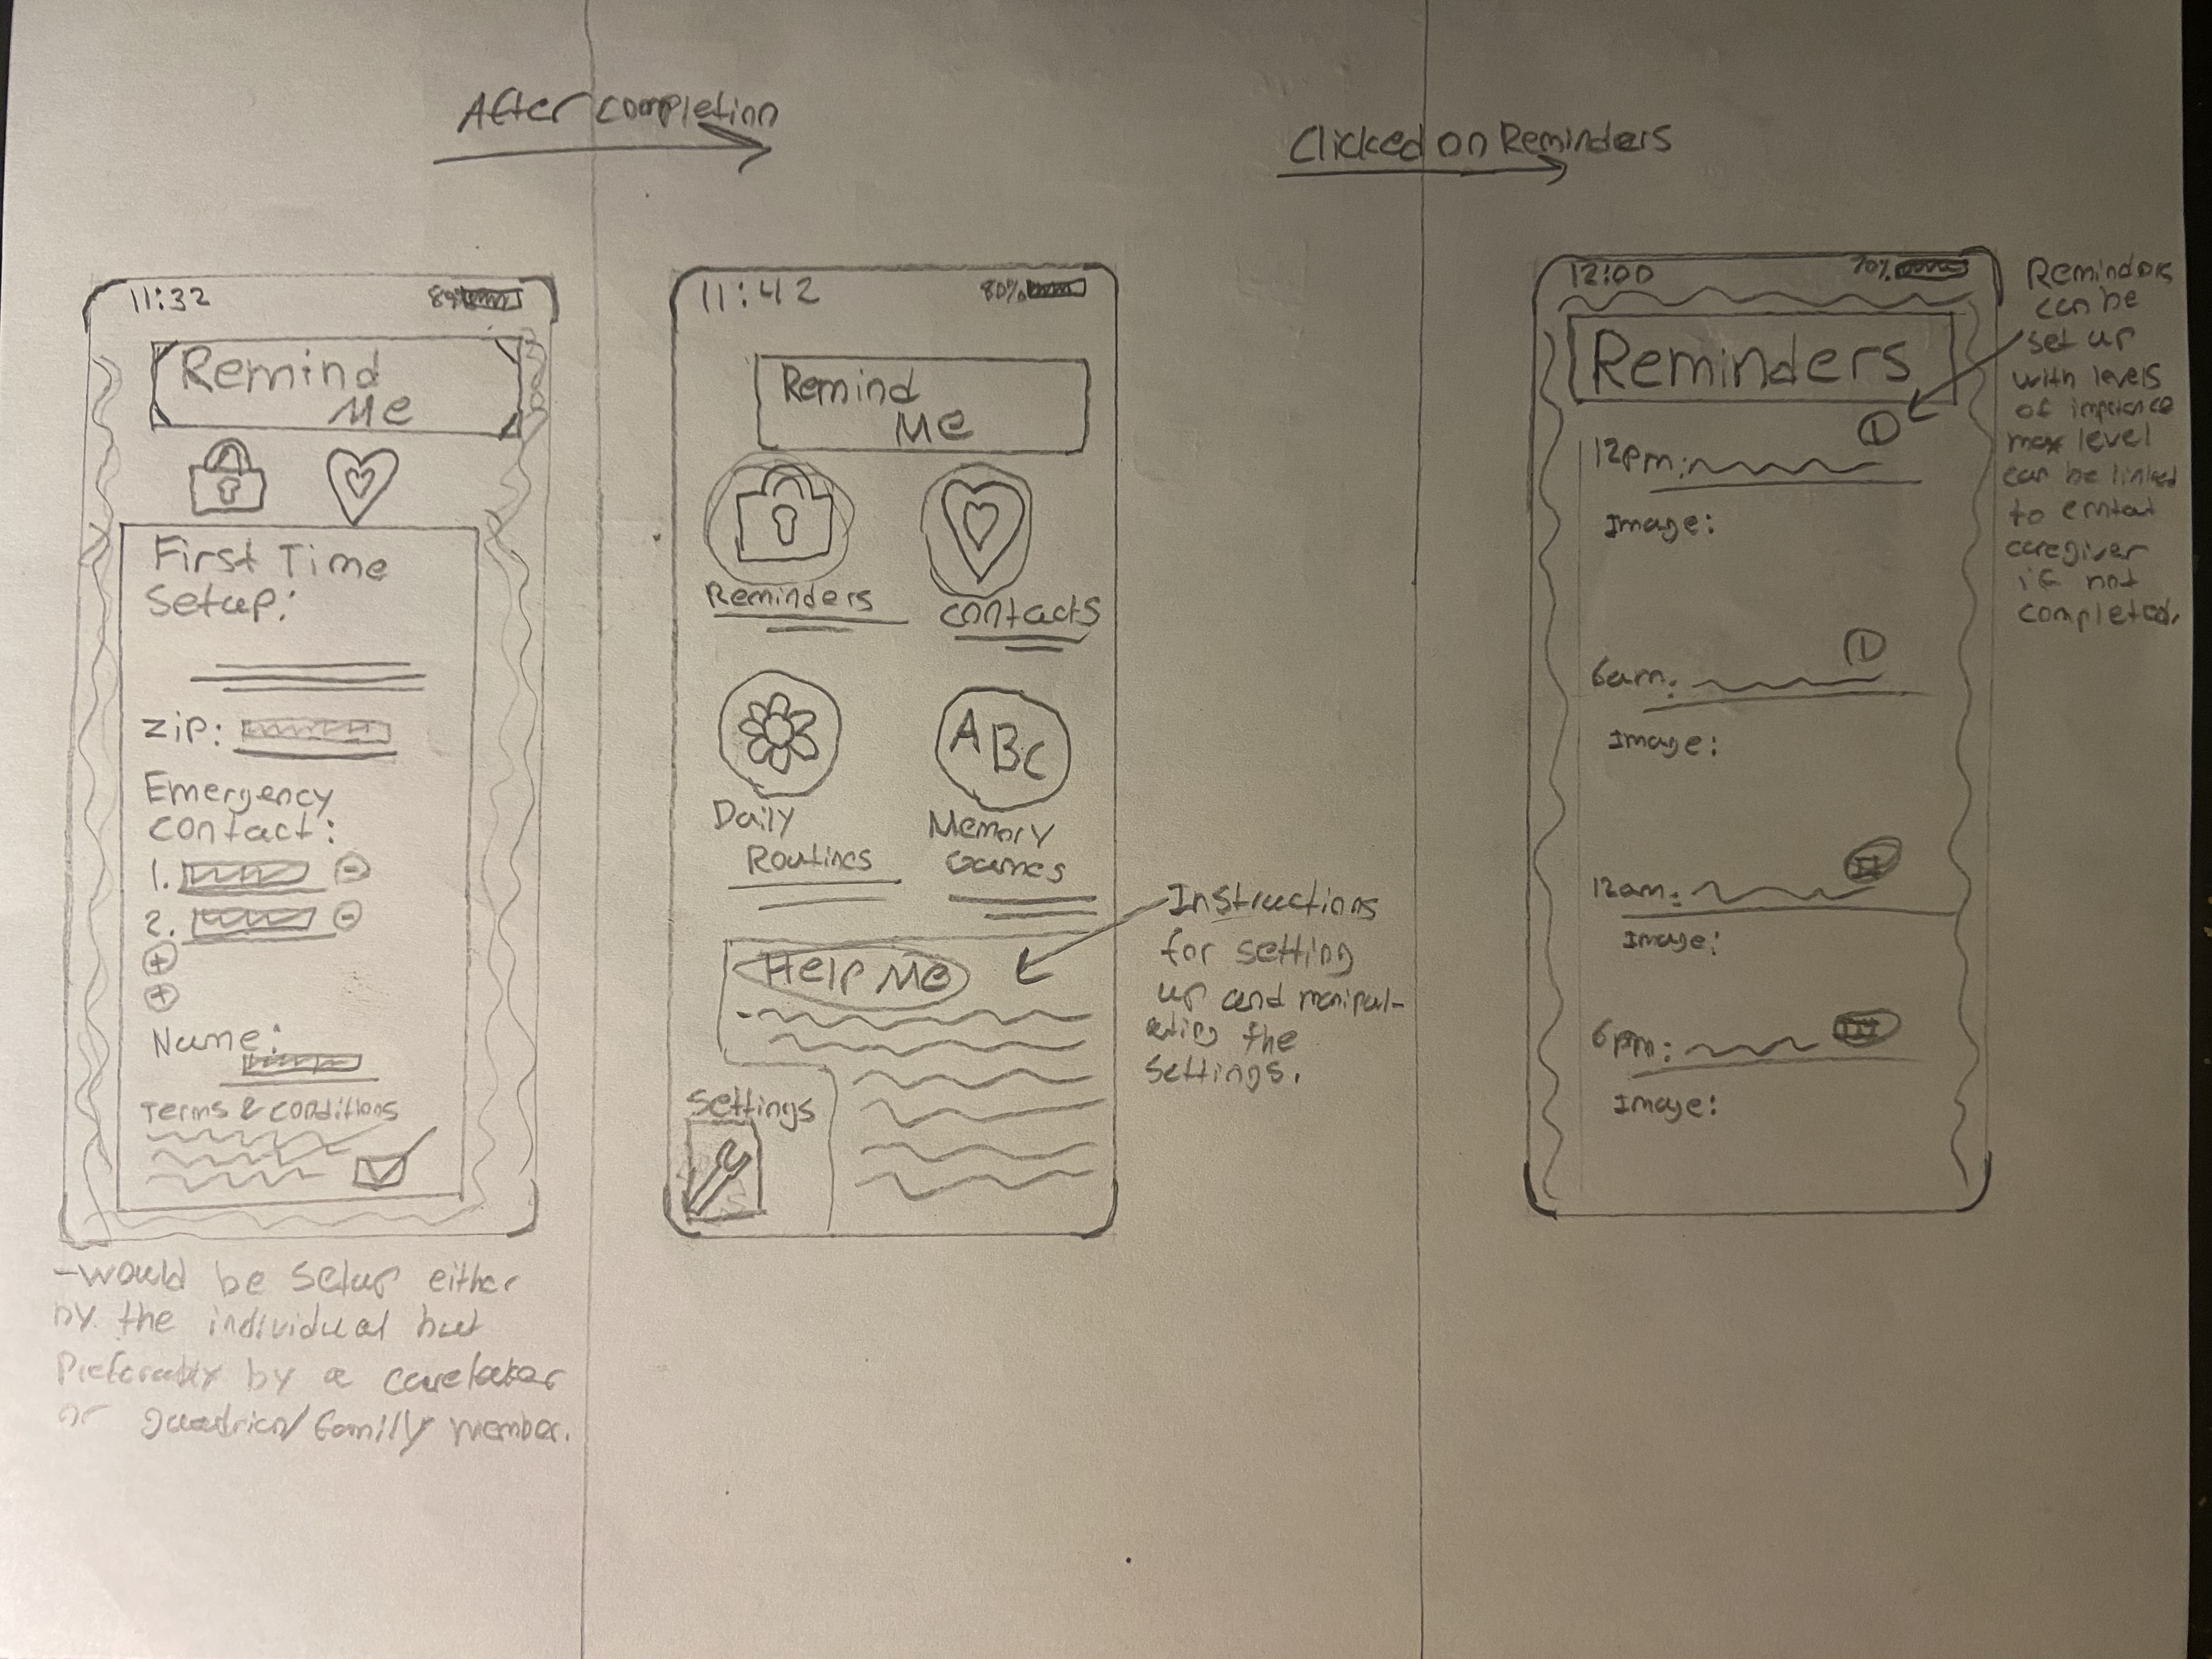 After completion
Clicked on Reminders
11:32
Remind
Me
First Time
Setup:
Zip:
Emergency
contact:
1.
2.
Name:
Terms & conditions
-would be setup either
by the individual but
Preferably by a caretaker
or guadrian/family member.
11:42
80%
Remind
Me
Reminders
contacts
Daily
Routines
Memory
Games
ABC
Help Me
Settings
Instructions
for setting
up and manipul-
ating the
settings.
12:00
70%
Reminders
I
12pm:
Image:
I
6am:
Image:
II
12am:
Image:
III
6pm:
Image:
Reminders
can be
set up
with levels
of
max level
can be linked
to
caregiver
if not
completed.